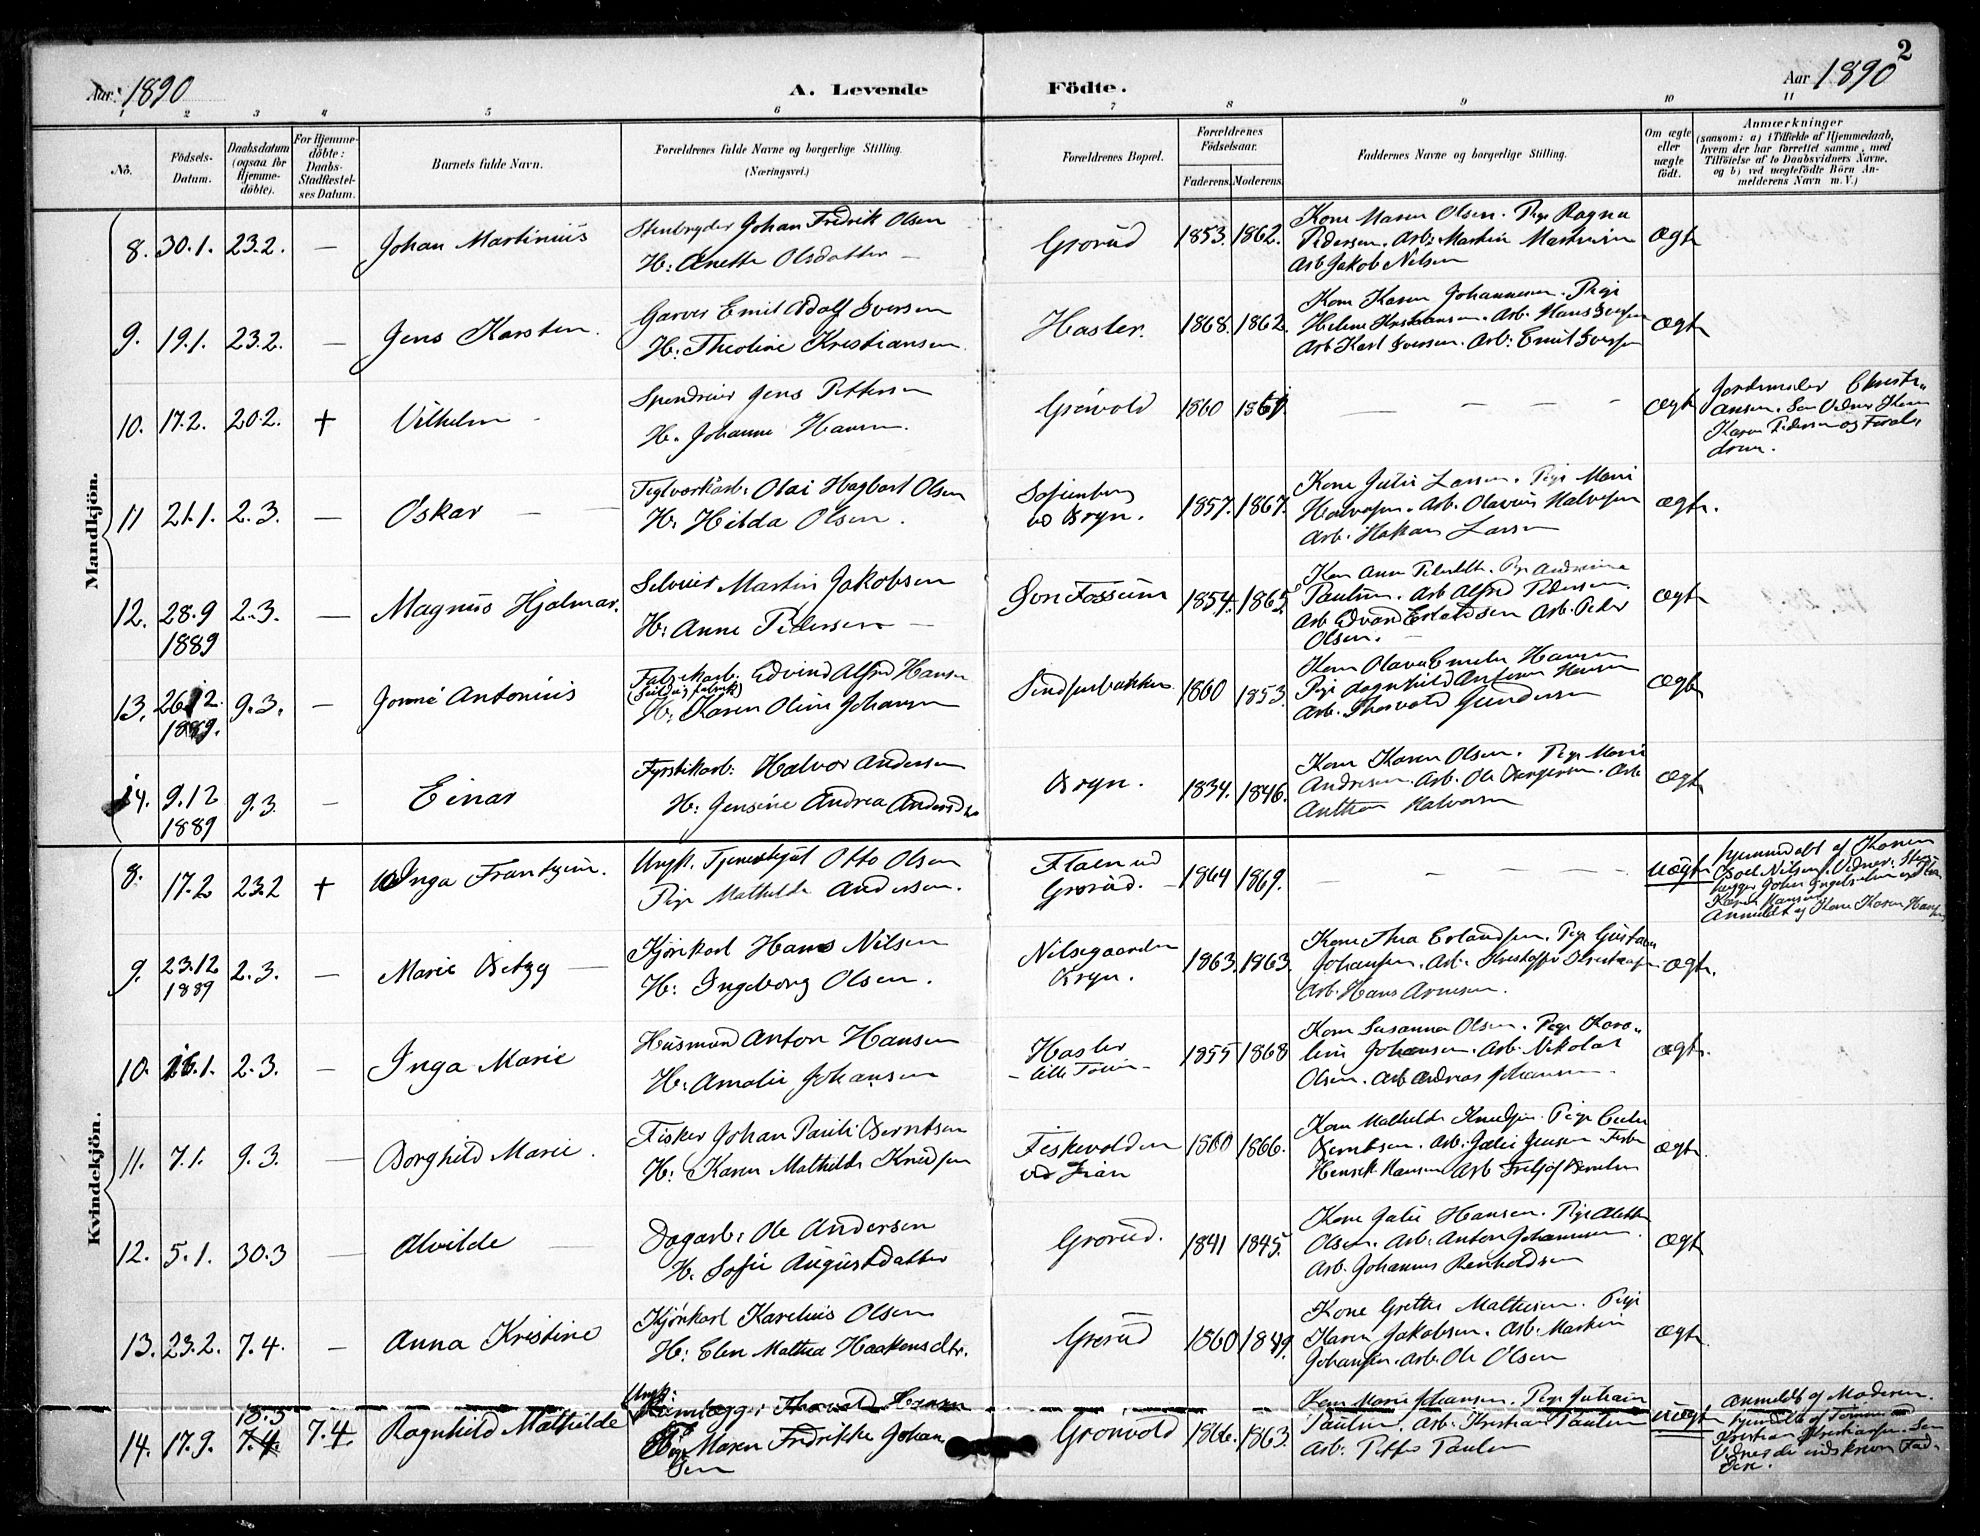 2
Aar 1890
A. Levende
Födte.
Aar 1890
1 2 3 4 5 6 7 8 9 10 11
No.
Födsels-
Datum.
Daabsdatum
(ogsaa for
Hjemme-
döbte).
For Hjemme-
döbte:
Daabs-
Stadfæstel-
ses Datum.
Barnets fulde Navn.
Forældrenes fulde Navne og borgerlige Stilling.
(Næringsvei.)
Forældrenes Bopæl.
Forældrenes
Födselsaar.
Faderens. Moderens.
Faddernes Navne og borgerlige Stilling.
Om ægte
eller
uægte
födt.
Anmærkninger
(saasom: a) i Tilfælde af Hjemmedaab,
hvem der har forrettet samme, med
Tilföielse af to Daabsvidners Navne,
og b) ved uægtefödte Börn An-
melderens Navn m. V.)
Mandkjön.
8. 30.1. 23.2. — Johan Martinius
Stenbryder Johan Fredrik Olsen
H: Anette Olsdatter —
Grorud 1853. 1862.
Kone Maren Olsen. Pige Ragna
Pedersen. Arb: Martin
Arb Jakob Nilsen
Ægte
9. 19.1. 23.2. — Jens Karsten.
Garver Emil Adolf Iversen
H: Theoline Kristiansen
Hasler. 1868. 1862.
Kone Karen Johannesen. Pige
Helene Kristiansen. Arb. Hans Iversen
Arb Karl Iversen. Arb: Emil Iversen
Ægte
10. 17.2. 20.2. + Vilhelm
Jens Pettersen
H. Johanne Hansen.
Grönvold 1860
— — — —
Ægte
Jordemoder Christi-
ansen. Som Vidner Kone
Karen Pedersen og Foræl-
drene.
11 21.1. 2.3. — Oskar — —
Teglværksarb: Olai Hagbart Olsen
H: Hilda Olsen.
Sofienberg
ved Bryn. 1857. 1867.
Kone Julie Larsen. Pige Marie
Halvorsen. Arb. Olavus Halvorsen
Arb. Hakan Larsen
Ægte.
12. 28.9
1889
2.3. — Magnus Hjalmar.
Selveier Martin Jakobsen
H: Anne Pedersen —
Fossum 1854. 1865.
Kone Anne Pige Andrine
Paulsen. Arb Alfred Pedersen
Arb Edvard Erlandsen Arb. Peder
Olsen. —
Ægte
13. 26.12
1889.
9.3. — Antonius
Fabrikarb: Edvind Alfred Hansen
H: Karen Oline Johansen
1860 1853.
Kone Olava Emilie Hansen
Pige Hansen
Arb. Thorvald Gundersen
Ægte
14. 9.12
1889
9.3. — Einar
Fyrstikarb: Halvor Andersen
H: Jensine Andrea Andersdtr
Bryn. 1834. 1846.
Kone Karen Olsen. Pige Marie
Andresen. Arb. Ole Arb
Anthon Halvorsen
Ægte
Kvindekjön.
8. 17.2 23.2 + Inga
Ungk. Otto Olsen
Pige Mathilde Andersen.
Flaen ved
Grorud. — 1864 1869.
— — — — —
Uægte
Hjemmedöbt af Konen
Nilsen. Vidner
Karen Hansen
Anmeldt af Kone Karen Hansen
9. 23.12
1889
2.3. — Marie Betzy —
Kjörekarl Hans Nilsen
H: Ingeborg Olsen.
Nilsegaarden
Bryn. 1863. 1863.
Kone Thea Erlandsen. Pige Gustava
Johansen. Arb.
Arb. Hans Arnesen.
Ægte.
10. 16.1. 2.3. — Inga Marie
Husmand Anton Hansen
H: Amalie Johansen
Hasler
1855 1868
Kone Susanna Olsen. Pige Karo-
line Johansen. Arb. Nikolai
Olsen. Arb Andreas Johansen.
Ægte.
11. 7.1. 9.3. — Borghild Marie.
Fisker Johan Pauli Berntsen
H: Karen Mathilde Knudsen
Fiskevolden
ved 1860 1866.
Kone Mathilde Knudsen. Pige
Berntsen. Arb: Julie Jensen
Henrik Hansen Arb Fritjof Berntsen
Ægte
12. 5.1. 30.3 — Alvilde —
Dagarb: Ole Andersen
H. Sofie Augustdatter
Grorud. 1841 1845.
Kone Julie Hansen. Pige Alette
Olsen. Arb: Anton Johannesen.
Arb. Johannes
Ægte
13. 23.2. 7.4. — Anna Kristine
Kjörekarl Karelius Olsen
H: Elen Mathea Haakensdtr.
Grorud 1860 1849.
Kone Grethe Mathisen. Pige
Karen Jakobsen. Arb: Martin
Johansen. Arb. Ole Olsen
Ægte
14. 17.9. 18.3
7.4
7.4. Ragnhild Mathilde
Ungk:
Thorvald Hansen
Pige Maren Fredrikke Johan
sen
Grönvold 1866. 1863.
Kone Marie Johansen. Pige
Paulsen Arb. Kristian Paulsen
Arb: Petter Paulsen
Uægte
Anmeldt af Moderen.
Hjemdöbt af
Kristian Kristiansen. Som
Vidner de indskrevne Fad-
dere.